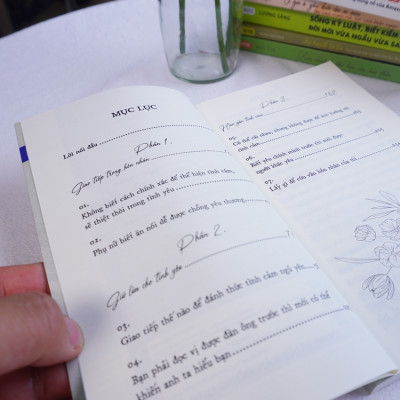 MỤC LỤC
Lời nói đầu
Phần 1.
Giao tiếp trong hôn nhân
01.
Không biết cách chính xác để thể hiện tình cảm,
sẽ thiệt thòi trong tình yêu
02.
Phụ nữ biết ăn nói dễ được chồng yêu thương
Phần 2.
Giữ lửa cho tình yêu
03.
Giao tiếp thế nào để đánh thức tình cảm ngủ yên
04.
Bạn phải đọc vị được đàn ông trước thì mới có thể
khiến anh ta hiểu bạn
Phần 3.
05.
Có thể cãi nhau, nhưng không được để ảnh hưởng tới
tình cảm
06.
Biết yêu chính mình trước thì mới được
người khác yêu
07.
Lấy gì để cứu vãn hôn nhân của tôi
SỐNG KỶ LUẬT, BIẾT KIỀM
ĐỜI MỚI VỪA NGẦU VỪA SA